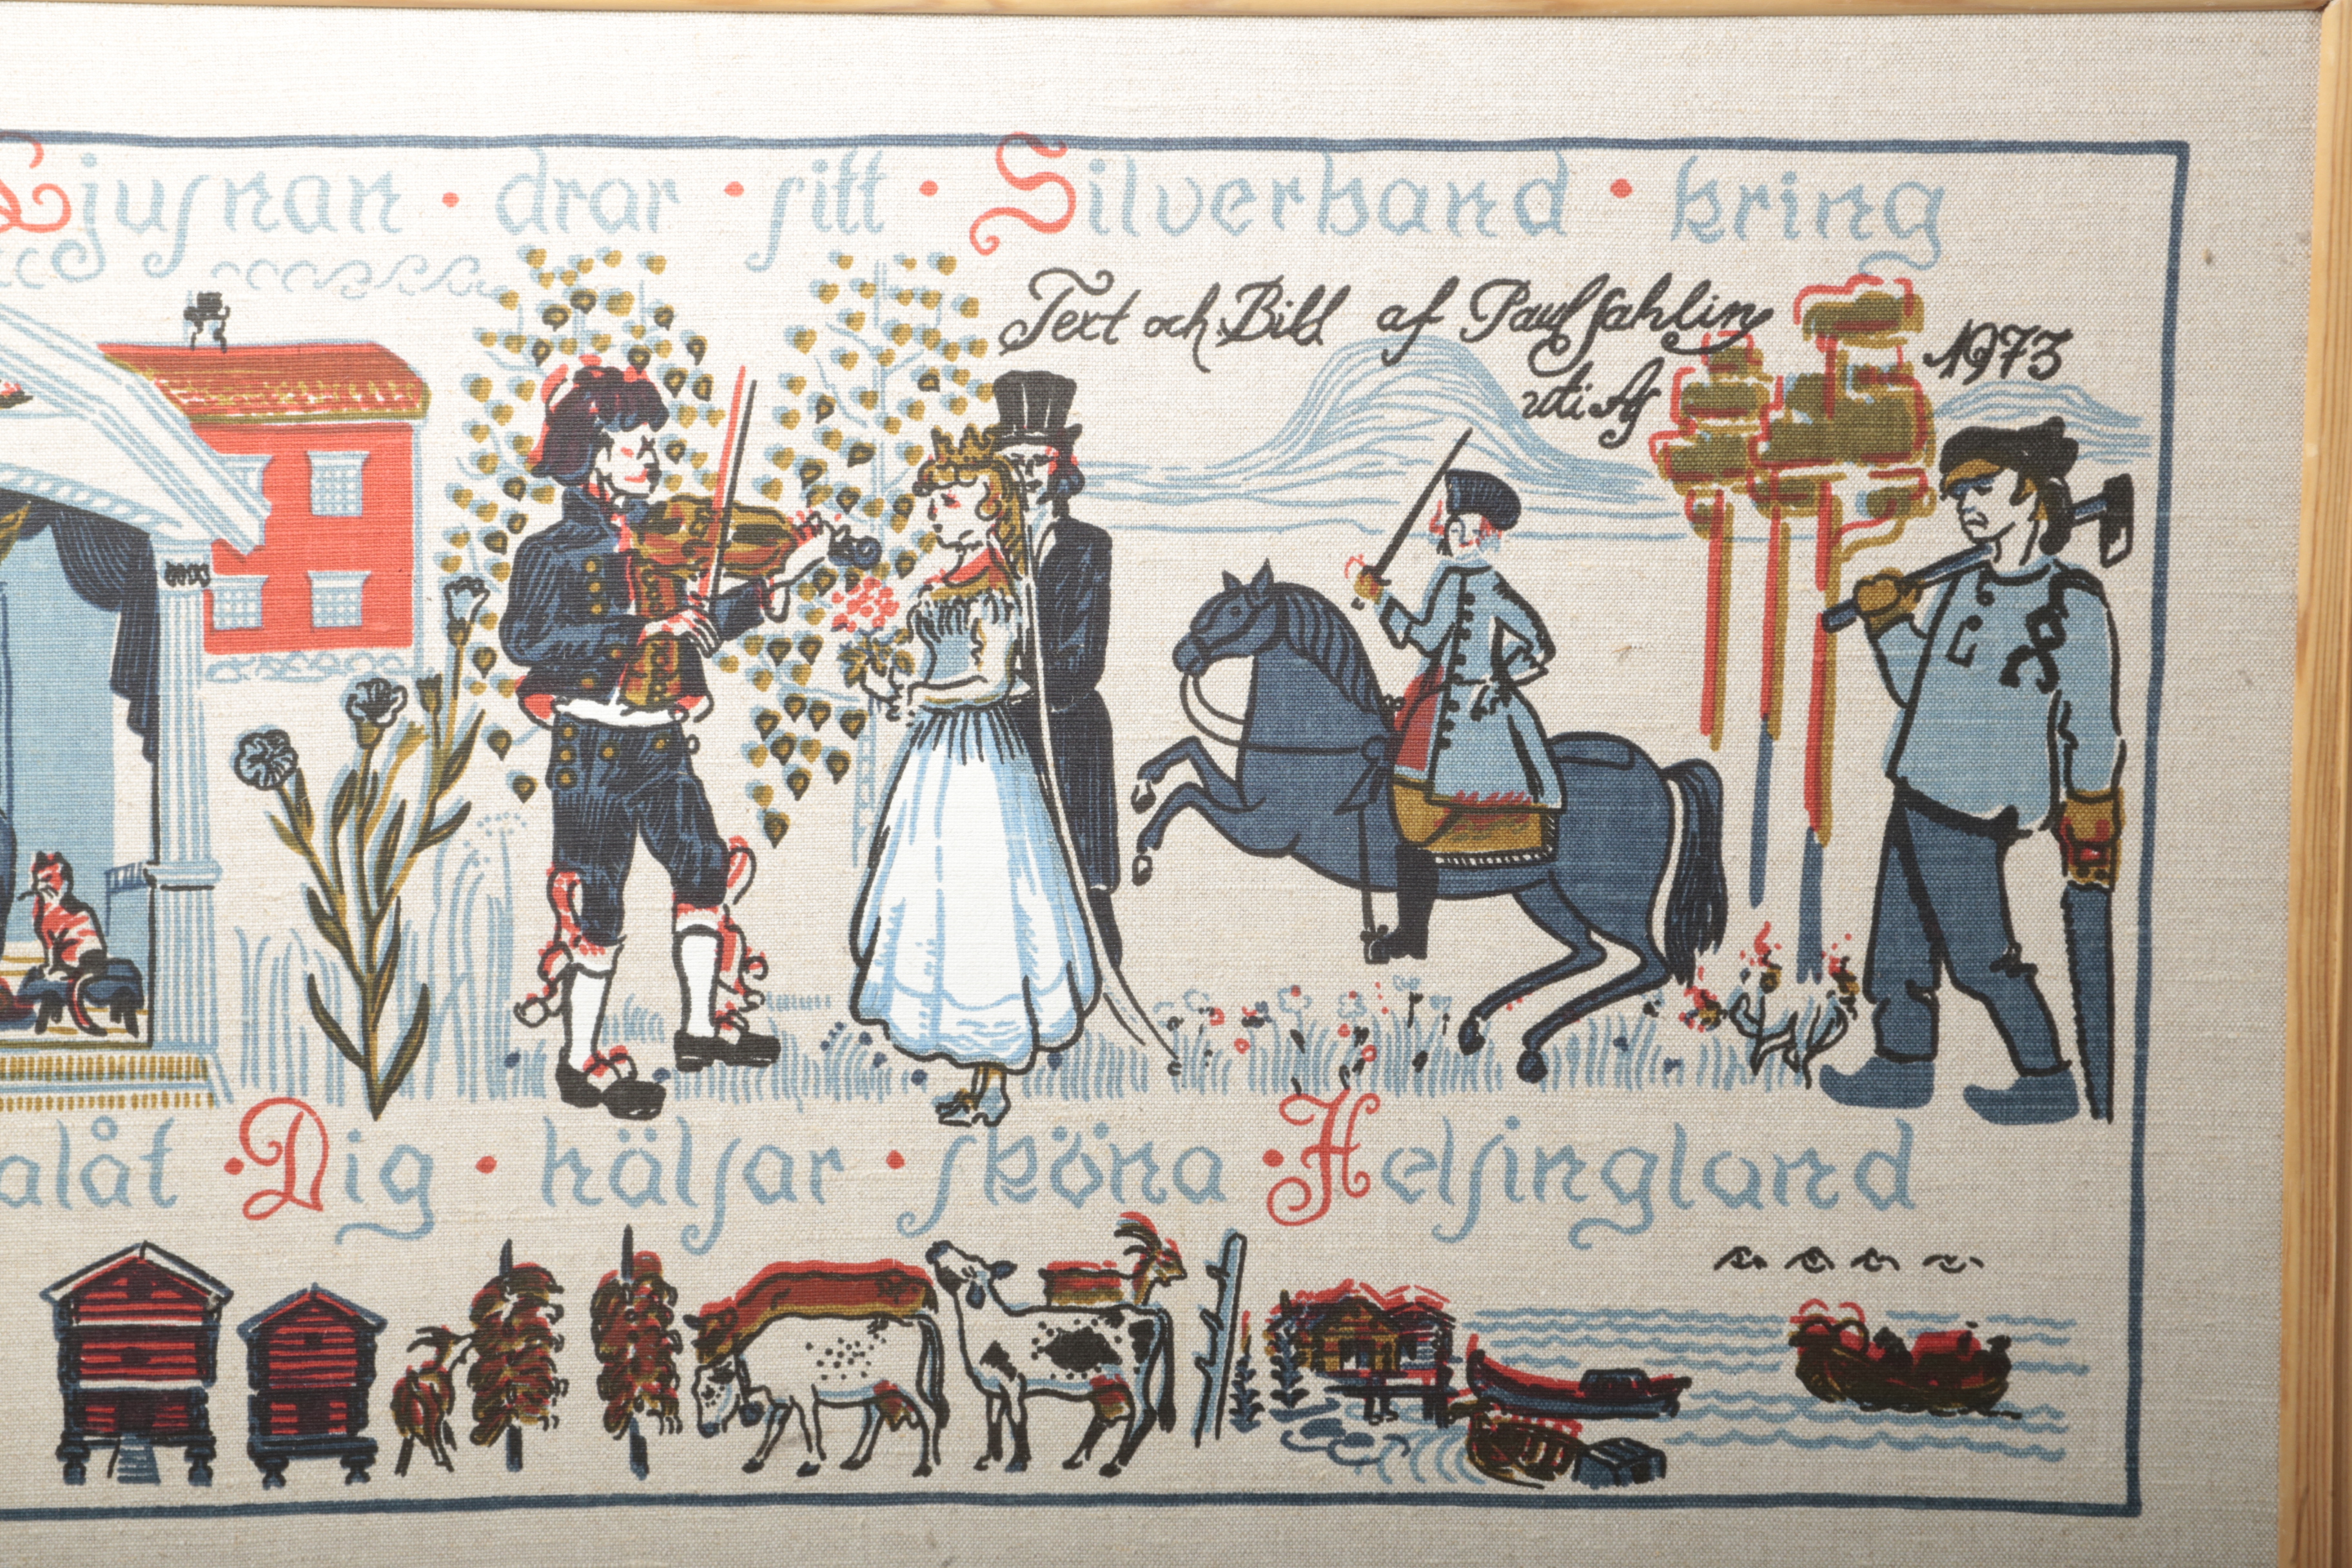 Ljuſnan · drar · ſitt · Silverband · kring
Text och Bild af Paul Sahlin
uti Af 1973
alåt · Dig · hälſar · ſköna · Helſingland